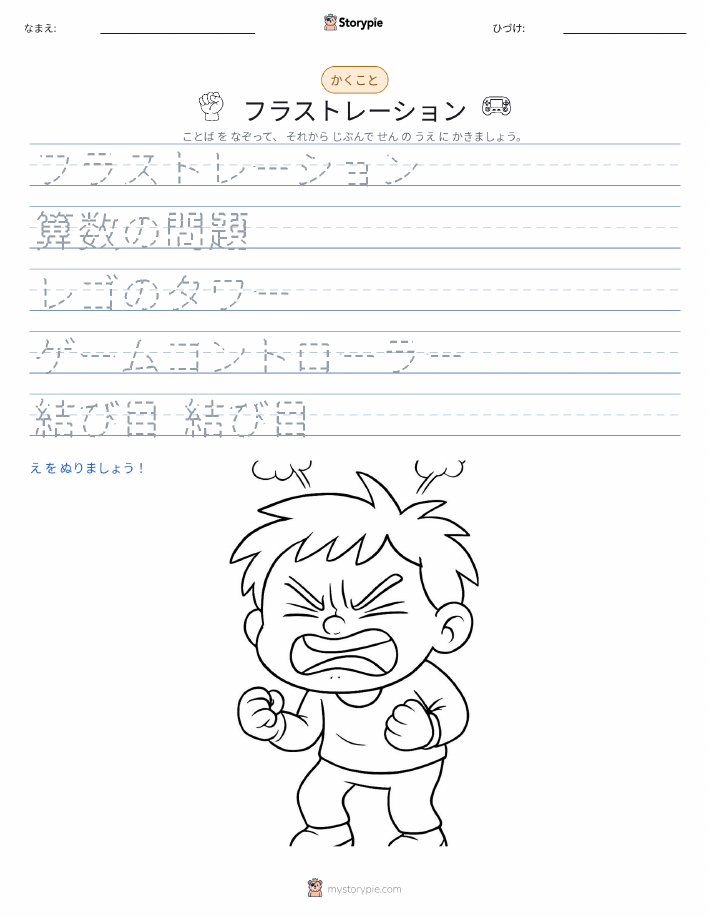 なまえ:
Storypie
ひづけ:
かくこと
フラストレーション
ことば を なぞって、 それから じぶんで せん の うえ に かきましょう。
フラストレーション
算数の問題
レゴのタワー
ゲームコントローラー
結び目 結び目
え を ぬりましょう！
mystorypie.com